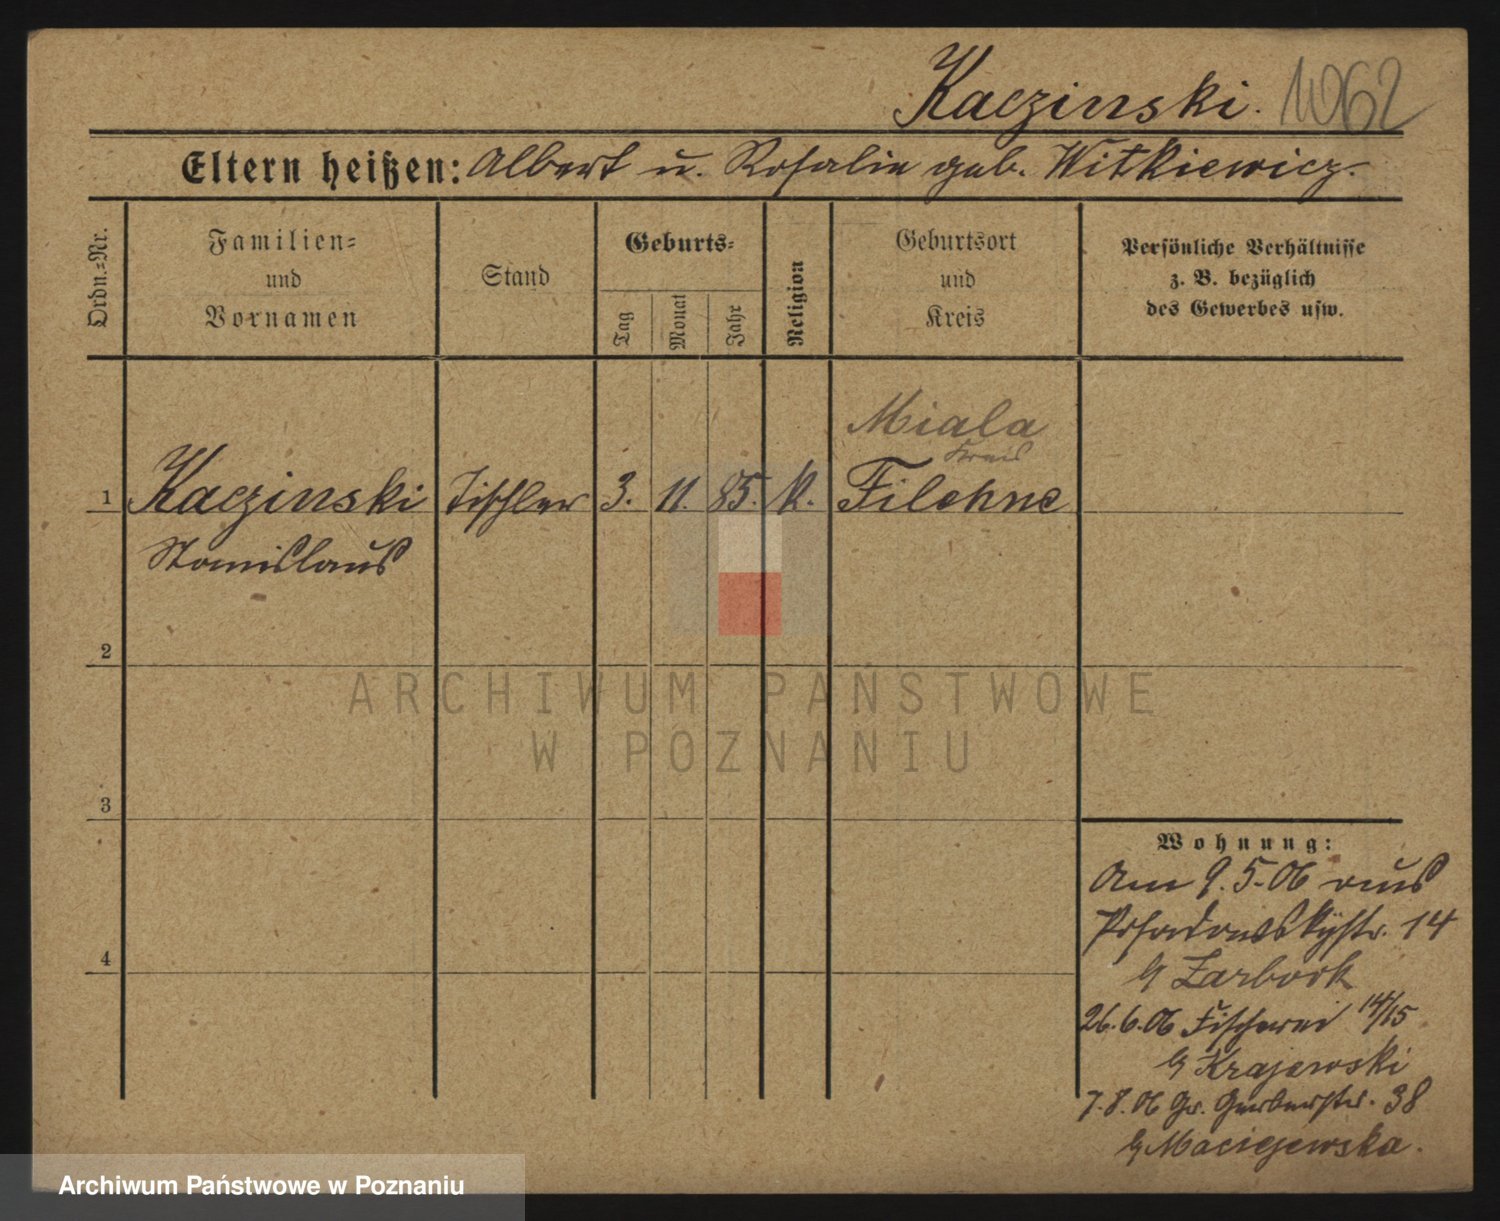 Kaczinski. 1062
Eltern heißen: Albert u. Rosalie geb. Witkiewicz.
Ordn.=Nr.
Familien=
und
Vornamen
Stand
Geburts=
Tag
Monat
Jahr
Religion
Geburtsort
und
Kreis
Persönliche Verhältnisse
z. B. bezüglich
des Gewerbes usw.
Miala
Kreis
1 Kaczinski Tischler 3. 11. 85. k. Filehne
Stanislaus
2
ARCHIWUM PAŃSTWOWE
W POZNANIU
3
Wohnung:
Am 9.5.06 aus
Posadowskystr. 14
b/ Zarbock
4
26.6.06 Fischerei 14/15
b/ Krajewski
7.8.06 Gr. Gerberstr. 38
b/ Maciejewska.
Archiwum Państwowe w Poznaniu